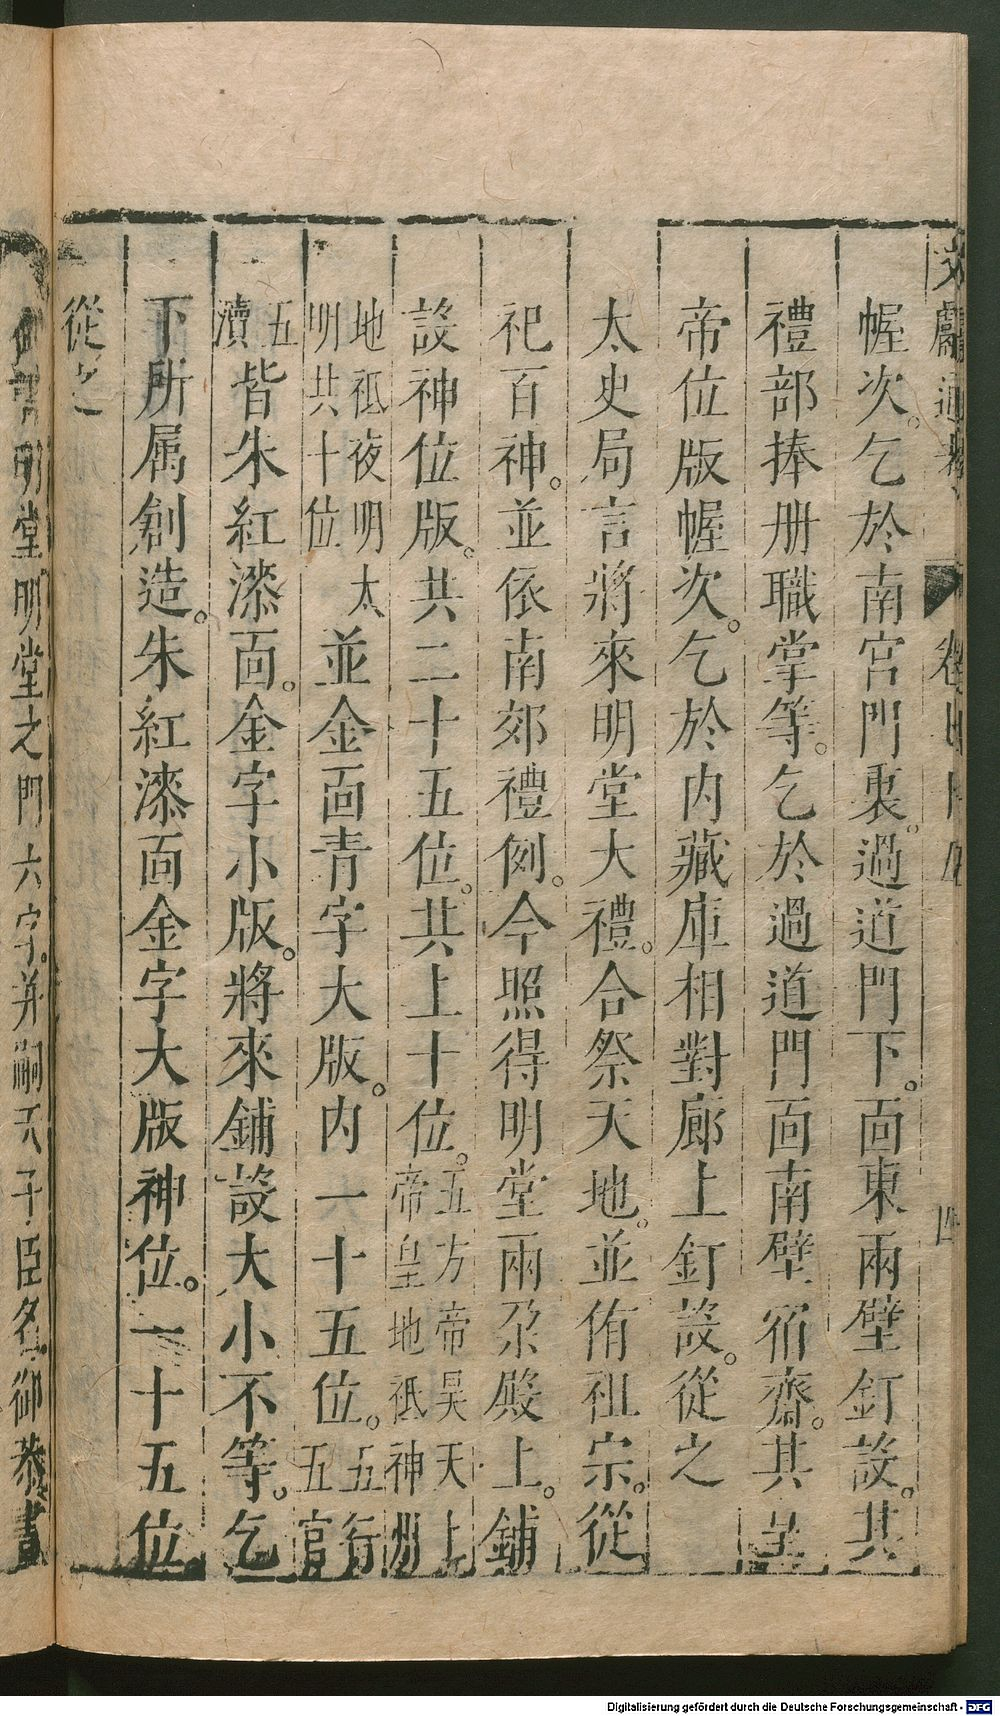 文獻通考 卷 四
幄次。乞於南宮門裏。過道門下。面東兩壁釘設。其
禮部捧册職掌等。乞於過道門面南壁宿齋。其皇
帝位版幄次。乞於内藏庫相對廊上釘設。從之
太史局言將來明堂大禮。合祭天地。並侑祖宗。從
祀百神。並依南郊禮例。今照得明堂兩朶殿上。鋪
設神位版。共二十五位。共上十位。五方帝昊天上帝皇地祇神州
地祇夜明太明共十位並金面青字大版。内一十五位。五行五官
五瀆皆朱紅漆面。金字小版。將來鋪設大小不等。乞
下所属創造。朱紅漆面金字大版神位。一十五位
從之
書明堂明堂之門六字。并嗣天子臣名御恭書
Digitalisierung gefördert durch die Deutsche Forschungsgemeinschaft - DFG